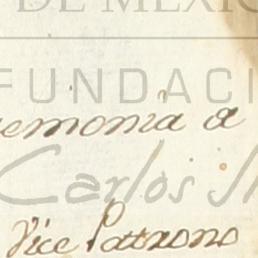 DE MÉXIC
FUNDACI
emonia a
Carlos Sl
Vice Pattrono